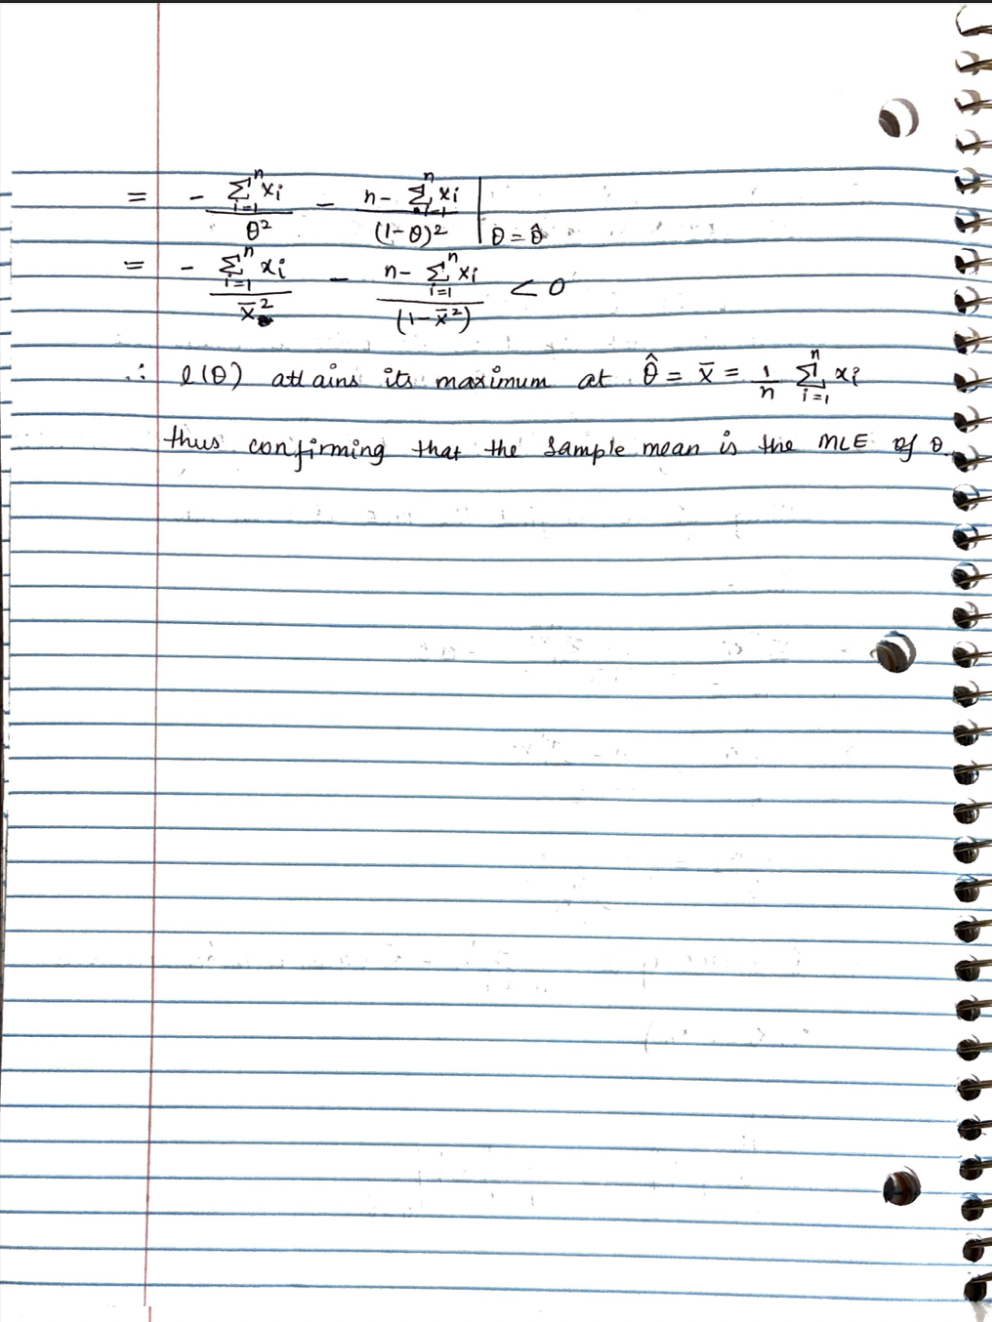 = - \frac{\sum_{i=1}^{n} x_i}{θ^2} - \frac{n - \sum_{i=1}^{n} x_i}{(1-θ)^2} |_{θ = \hat{θ}}
= - \frac{\sum_{i=1}^{n} x_i}{\bar{x}^2} - \frac{n - \sum_{i=1}^{n} x_i}{(1-\bar{x}^2)} < 0
∴ l(θ) attains its maximum at \hat{θ} = \bar{x} = \frac{1}{n} \sum_{i=1}^{n} x_i
thus confirming that the sample mean is the MLE of θ.